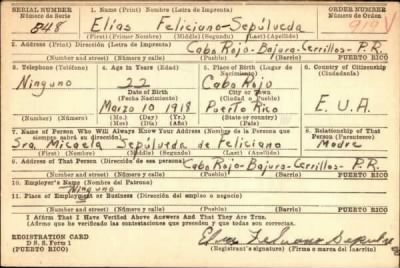 SERIAL NUMBER 1. Name (Print) Nombre (Letra de Imprenta) ORDER NUMBER
Número de Serie Número de Orden
848 Elías Feliciano-Sepúlveda
(First) (Primer Nombre) (Middle) (Segundo) (Last) (Apellido)
2. Address (Print) Dirección (Letra de Imprenta)
Cabo Rojo-Bajura-Cerrillos-P.R.
PUERTO RICO
3. Telephone (Teléfono) 4. Age in Years (Edad) 5. Place of Birth (Lugar de Nacimiento) 6. Country of Citizenship (Ciudadanía)
Ninguno 22 Cabo Rojo
Date of Birth City or Town
(Fecha Nacimiento) (Ciudad o Pueblo)
Marzo 10 1918 Puerto Rico E.U.A.
(Mo.) (Day) (Yr.) (State or country)
(Mes) (Día) (Año) (Estado o país)
7. Name of Person Who Will Always Know Your Address (Nombre de la Persona que siempre sabrá su dirección) 8. Relationship of That Person (Parentesco)
Sra. Micaela Sepúlveda de Feliciano Madre
(First) (Nombre) (Middle) (Segundo) (Last) (Apellido)
9. Address of That Person (Dirección de esa persona)
Cabo Rojo-Bajura-Cerrillos-P.R.
PUERTO RICO
10. Employer's Name (Nombre del Patrono)
Ninguno
11. Place of Employment or Business (Dirección del empleo o negocio)
PUERTO RICO
I Affirm That I Have Verified Above Answers And That They Are True.
(Afirmo que he verificado las contestaciones que preceden y que todas son correctas.
REGISTRATION CARD
D. S. S. Form 1
(PUERTO RICO) (Registrant's signature) (Firma del registrado)